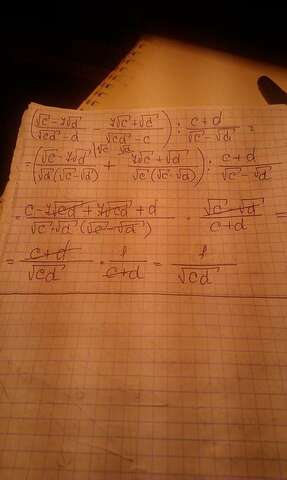 (√c - 7√d / √cd - d - 7√c + √d / √cd - c) : c + d / √c - √d =
= (√c - 7√d / √d(√c - √d) + 7√c + √d / √c(√c - √d)) : c + d / √c - √d
= c - 7√cd + 7√cd + d / √c · √d (√c - √d) · √c - √d / c + d =
= c + d / √cd · 1 / c + d = 1 / √cd